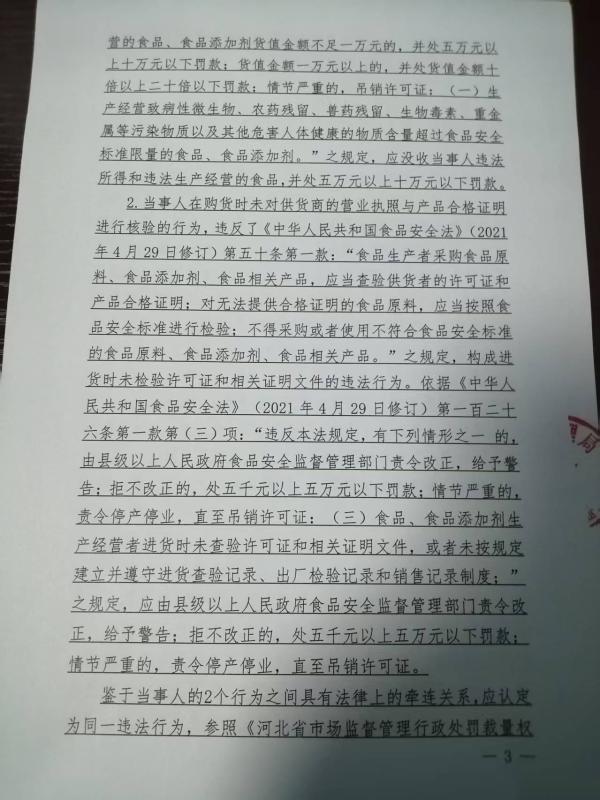 营的食品、食品添加剂货值金额不足一万元的，并处五万元以
上十万元以下罚款；货值金额一万元以上的，并处货值金额十
倍以上二十倍以下罚款；情节严重的，吊销许可证：（一）生
产经营致病性微生物、农药残留、兽药残留、生物毒素、重金
属等污染物质以及其他危害人体健康的物质含量超过食品安全
标准限量的食品、食品添加剂。”之规定，应没收当事人违法
所得和违法生产经营的食品，并处五万元以上十万元以下罚款。
2.当事人在购货时未对供货商的营业执照与产品合格证明
进行核验的行为，违反了《中华人民共和国食品安全法》（2021
年4月29日修订）第五十条第一款：“食品生产者采购食品原
料、食品添加剂、食品相关产品，应当查验供货者的许可证和
产品合格证明；对无法提供合格证明的食品原料，应当按照食
品安全标准进行检验；不得采购或者使用不符合食品安全标准
的食品原料、食品添加剂、食品相关产品。”之规定，构成进
货时未检验许可证和相关证明文件的违法行为。依据《中华人
民共和国食品安全法》（2021年4月29日修订）第一百二十
六条第一款第（三）项：“违反本法规定，有下列情形之一 的，
由县级以上人民政府食品安全监督管理部门责令改正，给予警
告；拒不改正的，处五千元以上五万元以下罚款；情节严重的，
责令停产停业，直至吊销许可证：（三）食品、食品添加剂生
产经营者进货时未查验许可证和相关证明文件，或者未按规定
建立并遵守进货查验记录、出厂检验记录和销售记录制度；”
之规定，应由县级以上人民政府食品安全监督管理部门责令改
正，给予警告；拒不改正的，处五千元以上五万元以下罚款；
情节严重的，责令停产停业，直至吊销许可证。
鉴于当事人的2个行为之间具有法律上的牵连关系，应认定
为同一违法行为，参照《河北省市场监督管理行政处罚裁量权
— 3 —
局